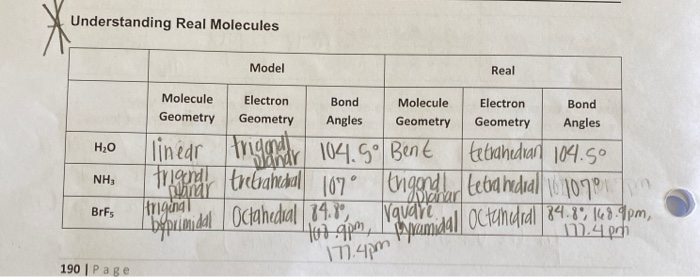 Understanding Real Molecules
Model Real
Molecule Geometry Electron Geometry Bond Angles Molecule Geometry Electron Geometry Bond Angles
H₂O linear trigonal planar 104.5° Bent tetrahedran 104.5°
NH₃ trigonal planar tretrahedral 107° trigonal planar tetrahedral 107°
BrF₅ triginal byprimidal Octahedral 84.8°, 168.9pm, 177.4pm Pyramidal octahedral 84.8°, 168.9pm, 177.4pm
190 | Page